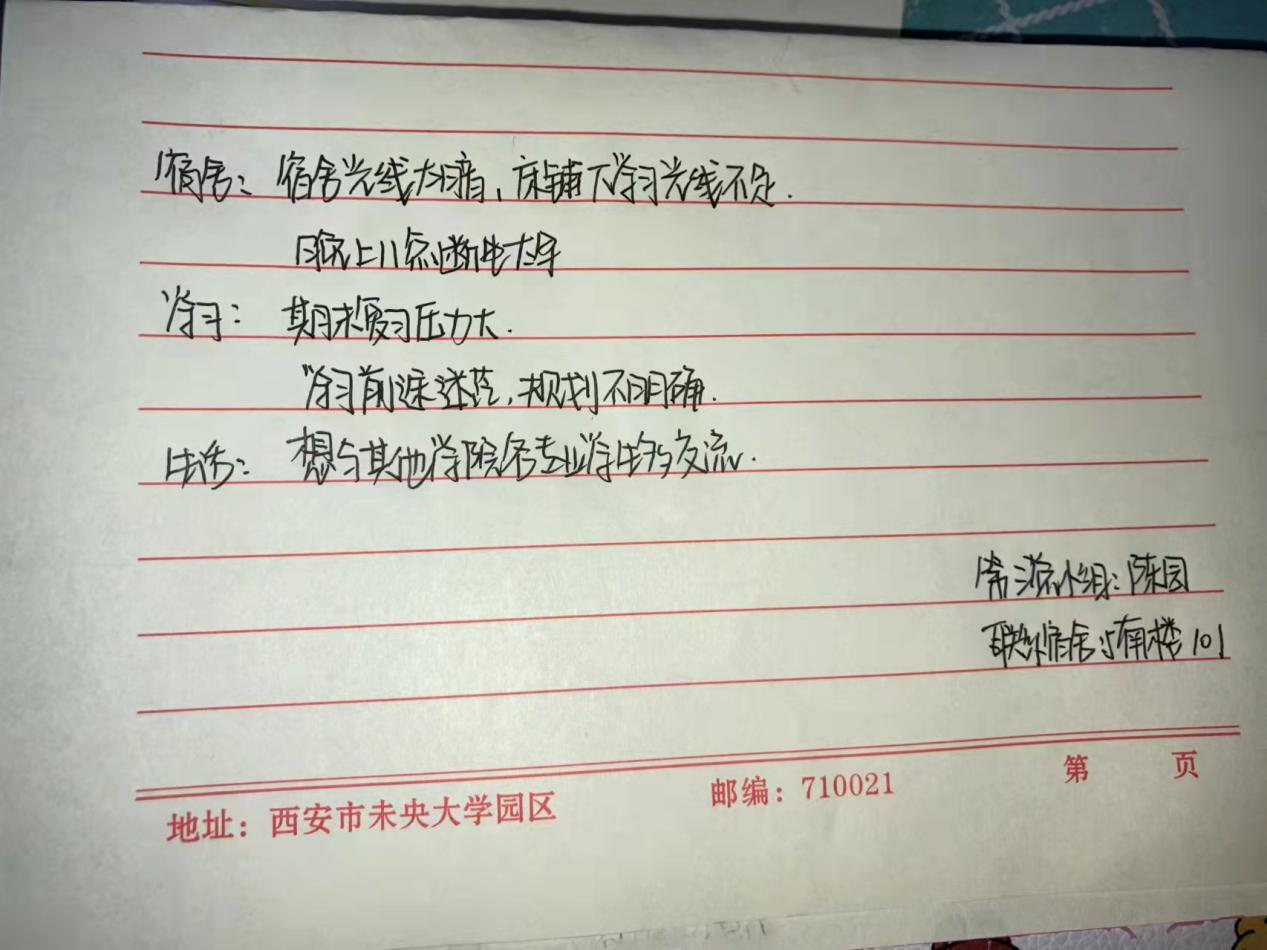 宿舍：宿舍光线太暗，床铺下学习光线不足.
晚上11点断电太早
学习：期末复习压力大.
学习前途迷茫，规划不明确.
生活：想与其他学院各专业学生多交流.
小组：陈园
联系宿舍：南楼101
地址：西安市未央大学园区 邮编：710021 第 页